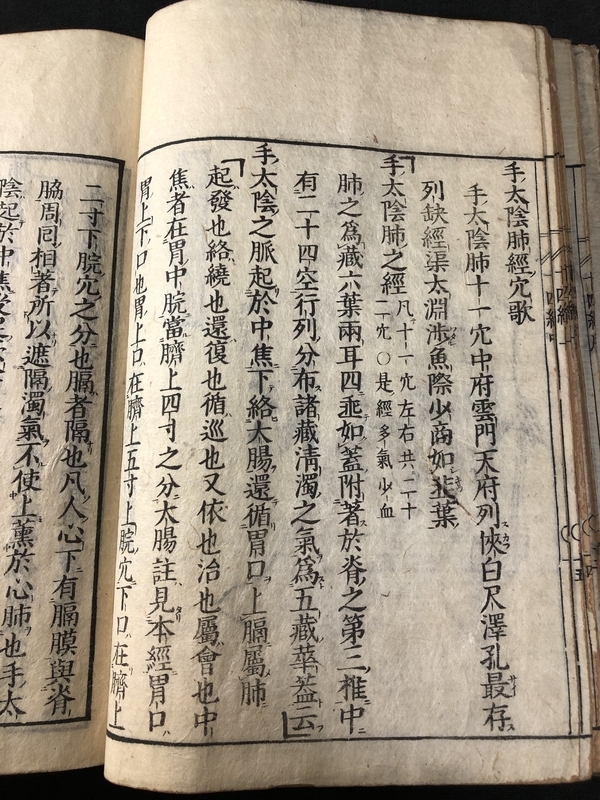 手太陰肺經穴歌
手太陰肺十一穴中府雲門天府列俠白尺澤孔最存
列缺經渠太淵渉魚際少商如韭葉
手太陰肺之經凡十一穴左右共二十
二穴○是經多氣少血
肺之爲藏六葉兩耳四垂如蓋附著於脊之第三椎中
有二十四空行列分布諸藏清濁之氣爲五藏華蓋云
手太陰之脈起於中焦下絡大腸還循胃口上膈屬肺
起發也絡繞也還復也循巡也又依也沿也屬會也中
焦者在胃中脘當臍上四寸之分大腸註見本經胃口
胃上下口也胃上口在臍上五寸上脘穴下口在臍上
二寸下脘穴之分也膈者隔也凡人心下有膈膜與脊
脇周回相著所以遮隔濁氣不使上薰於心肺也手太
陰起於中焦